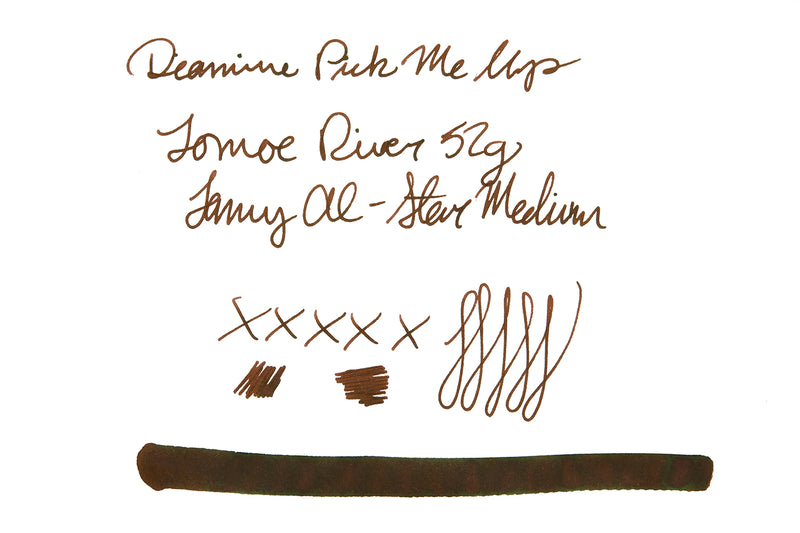 Diamine Pick Me Up
Tomoe River 52g
Lamy Al-Star Medium
x x x x x